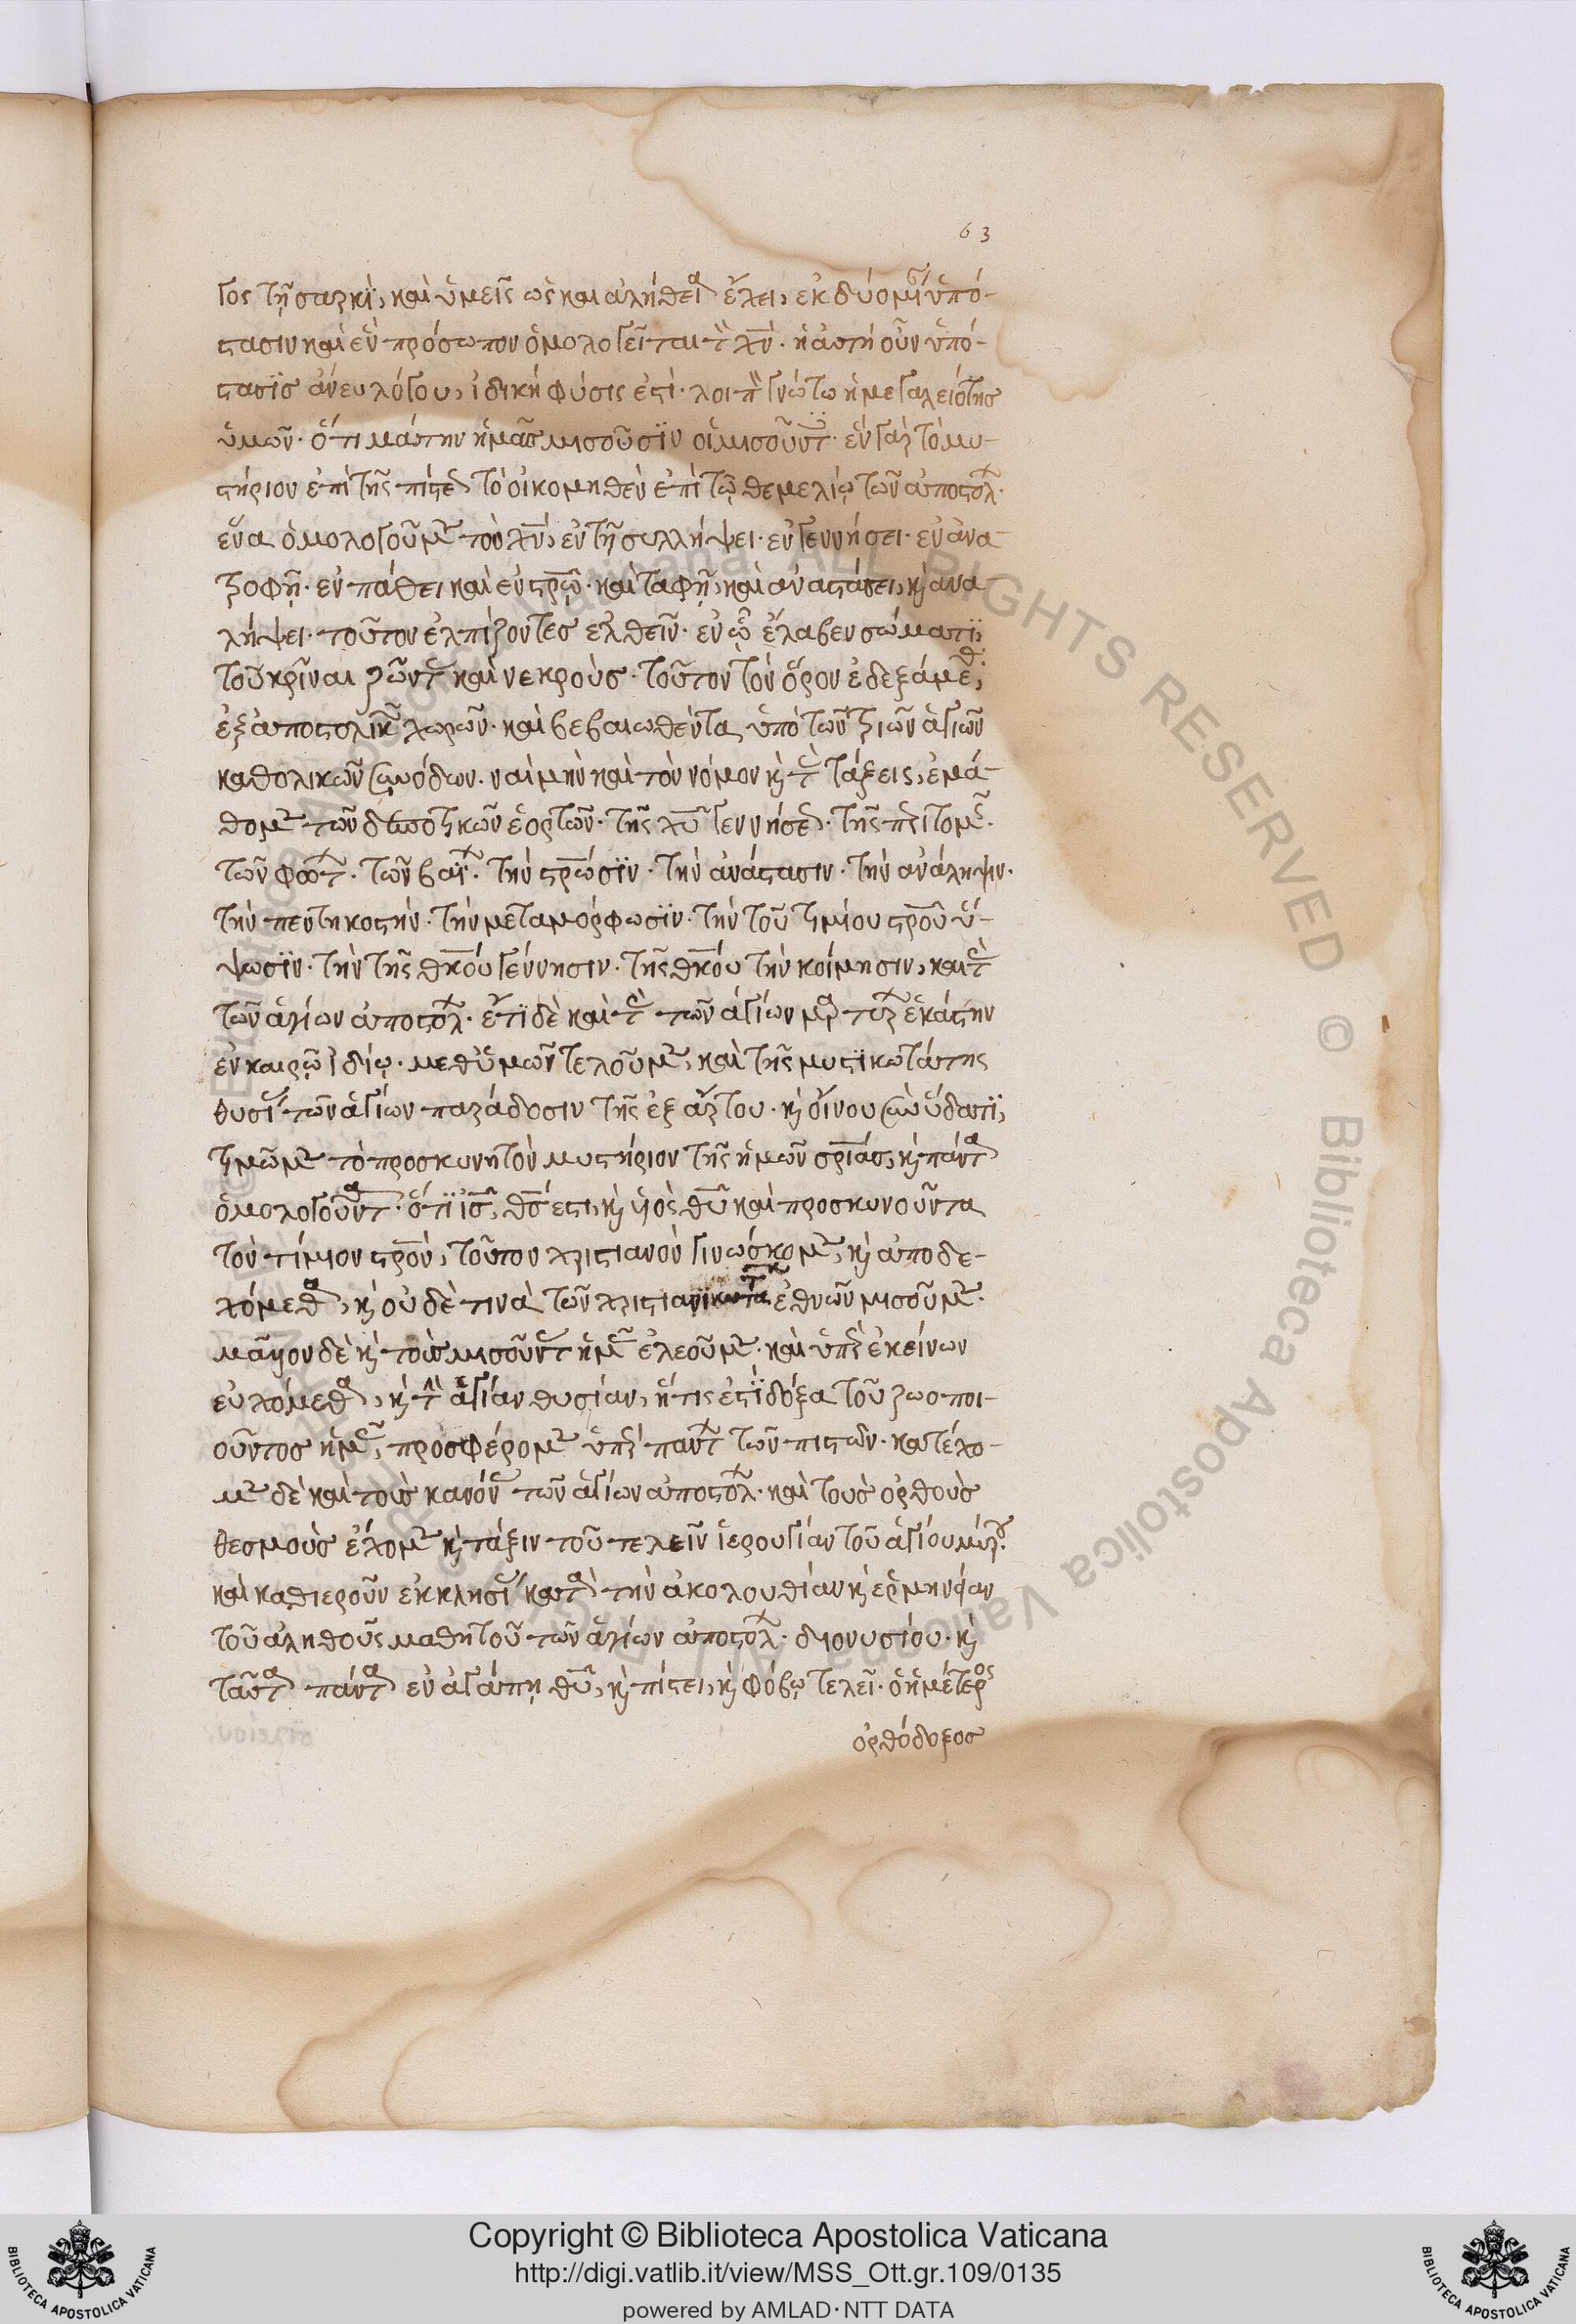 63
γος τῆ σαρκὶ, καὶ ὑμεῖς ὡς καὶ ἀλήθεια ἔχει, ἐκ δύο μίαν ὑπό-
στασιν καὶ ἓν πρόσωπον ὁμολογεῖται τὸν χν̄. ἡ αὐτὴ οὖν ὑπό-
στασϊς ἄνευ λόγου, ἰδικὴ φύσις ἐστὶ. λοιπὸν γνώτω ἡ μεγαλειότης
ὑμῶν. ὅτι μάτην ἡμᾶς μισοῦσϊν οἱ μισοῦντες. ἓν γὰρ τὸ μυ-
στήριον ἐπὶ τῆς πίστεως τὸ οἰκομηθὲν ἐπὶ τῷ θεμελίῳ τῶν ἀποστόλων.
ἕνα ὁμολογοῦμεν τὸν χν̄, ἐν τῆ συλλήψει. ἐν γεννήσει. ἐν ἀνα-
τροφῇ. ἐν πάθει καὶ ἐν στρῶ. καὶ ταφῇ, καὶ ἀναστάσει, κ̀ ἀνα
λήψει. τοῦτον ἐλπίζοντες ἐλθεῖν. ἐν ᾧ ἔλαβεν σώματϊ,
τοῦ κρῖναι ζῶντας καὶ νεκροὺς. τοῦτον τὸν ὅρον ἐδεξάμεθα,
ἐξ ἀποστολικῶν χωρῶν. καὶ βεβαιωθέντα ὑπὸ τῶν τριῶν ἁγιῶν
καθολικῶν συνόδων. ναὶ μὴν καὶ τὸν νόμον κ̀ τὰς τάξεις, ἐμά-
θομεν τῶν δεσποτικῶν ἑορτῶν. τῆς χῡ γεννήσεως. τῆς περιτομῆς.
τῶν φώτων. τῶν βαΐων. τὴν στρώσϊν. τὴν ἀνάστασιν. τὴν ἀνάληψιν.
τὴν πεντηκοστήν. τὴν μεταμόρφωσϊν. τὴν τοῦ τιμίου στροῦ ὕ-
ψωσϊν. τὴν τῆς θκ̄ου γέννησιν. τῆς θκ̄ου τὴν κοίμησιν, καὶ τὰς
τῶν ἁγίων ἀποστόλων. ἔτϊ δὲ καὶ τὰς τῶν ἁγίων μαρτύρων ἑκάστην
ἐν καιρῷ ἰδίῳ. μεθ' ὑμῶν τελοῦμεν, καὶ τῆς μυστϊκωτάτης
θυσίας τῶν ἁγίων παράδοσιν τῆς ἐξ ἄρτου. κ̀ οἴνου σὺν ὕδατϊ,
τιμῶμεν τὸ προσκυνητὸν μυστήριον τῆς ἡμῶν σρ̄ίας, κ̀ πάντα
ὁμολογοῦντα. ὅτϊ ις̄, θς̄ ἐστι, κ̀ υἱὸς θῡ καὶ προσκυνοῦντα
τὸν τίμιον στρὸν, τοῦτον χριστιανὸν γινώσκομεν, κ̀ ἀποδε-
χόμεθα, κ̀ οὐδὲ τινὰ τῶν χριστιανϊκῶν ἐθνῶν μισοῦμεν.
μᾶλλον δὲ κ̀ τοὺς μισοῦντας ἡμᾶς ἐλεοῦμεν. καὶ ὑπὲρ ἐκείνων
εὐχόμεθα, κ̀ τὴν ἁγίαν θυσίαν, ἥτις ἐστὶ δόξα τοῦ ζωοποι-
οῦντος ἡμᾶς, προσφέρομεν ὑπὲρ πάντων τῶν πιστῶν. κατέχο-
μεν δὲ καὶ τοὺς κανόνας τῶν ἁγίων ἀποστόλων. καὶ τοὺς ὀρθοὺς
θεσμοὺς ἔχομεν κ̀ τάξιν τοῦ τελεῖν ἱερουγίαν τοῦ ἁγίου μύρου.
καὶ καθιεροῦν ἐκκλησίας κατὰ τὴν ἀκολουθίαν κ̀ ἑρμηνείαν
τοῦ ἀληθοῦς μαθητοῦ τῶν ἁγίων ἀποστόλων. διονυσίου. κ̀
ταῦτα πάντα ἐν ἀγάπῃ θῡ, κ̀ πίστει, κ̀ φόβῳ τελεῖ. ὁ ἡμέτερος
ὀρθόδοξος
© Biblioteca Apostolica Vaticana ALL RIGHTS RESERVED © Biblioteca Apostolica Vaticana ALL RIGHTS RESERVED
Copyright © Biblioteca Apostolica Vaticana
http://digi.vatlib.it/view/MSS_Ott.gr.109/0135
powered by AMLAD·NTT DATA
BIBLIOTECA APOSTOLICA VATICANA
BIBLIOTECA APOSTOLICA VATICANA